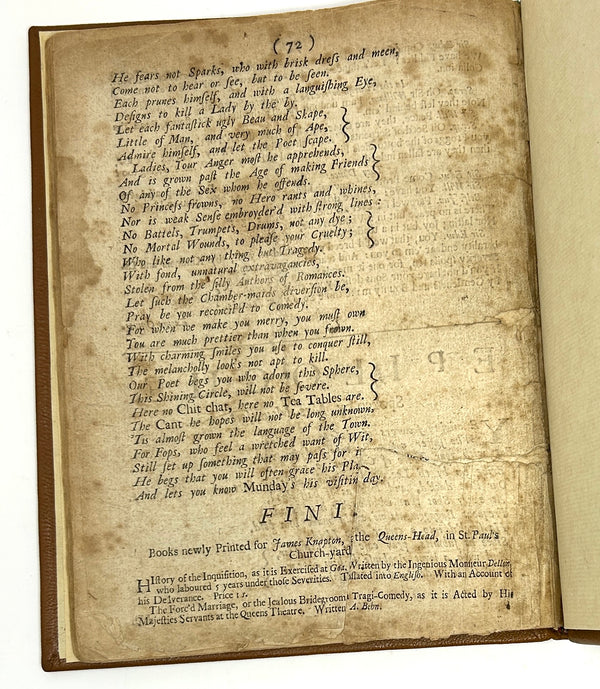 ( 72 )
He fears not Sparks, who with brisk dress and meen,
Come not to hear or see, but to be seen.
Each prunes himself, and with a languishing Eye,
Designs to kill a Lady by the by.
Let each fantastick ugly Beau and Skape,
Little of Man, and very much of Ape,
Admire himself, and let the Poet scape.
Ladies, Your Anger most he apprehends,
And is grown past the Age of making Friends
Of any of the Sex whom he offends.
No Princess frowns, no Hero rants and whines,
Nor is weak Sense embroyder'd with strong lines :
No Battels, Trumpets, Drums, not any dye ;
No Mortal Wounds, to please your Cruelty ;
Who like not any thing but Tragedy.
With fond, unnatural extravagancies,
Stolen from the silly Authors of Romances.
Let such the Chamber-maids diversion be,
Pray be you reconcil'd to Comedy.
For when we make you merry, you must own
You are much prettier than when you frown.
With charming smiles you use to conquer still,
The melancholly look's not apt to kill.
Our Poet begs you who adorn this Sphere,
This Shining Circle, will not be severe.
Here no Chit chat, here no Tea Tables are.
The Cant he hopes will not be long unknown,
'Tis almost grown the language of the Town.
For Fops, who feel a wretched want of Wit,
Still set up something that may pass for i
He begs that you will often grace his Pla
And lets you know Munday's his visitin day.
FINI
Books newly Printed for James Knapton, the Queens-Head, in St. Paul's
Church-yard
HIstory of the Inquisition, as it is Exercised at Goa. Written by the Ingenious Monsieur Dellon,
who laboured 5 years under those Severities. Tslated into English. With an Account of
his Deliverance. Price 1 s.
The Forc'd Marriage, or the Jealous Bridegroom Tragi-Comedy, as it is Acted by Hi
Majesties Servants at the Queens Theatre. Written A. Behn.